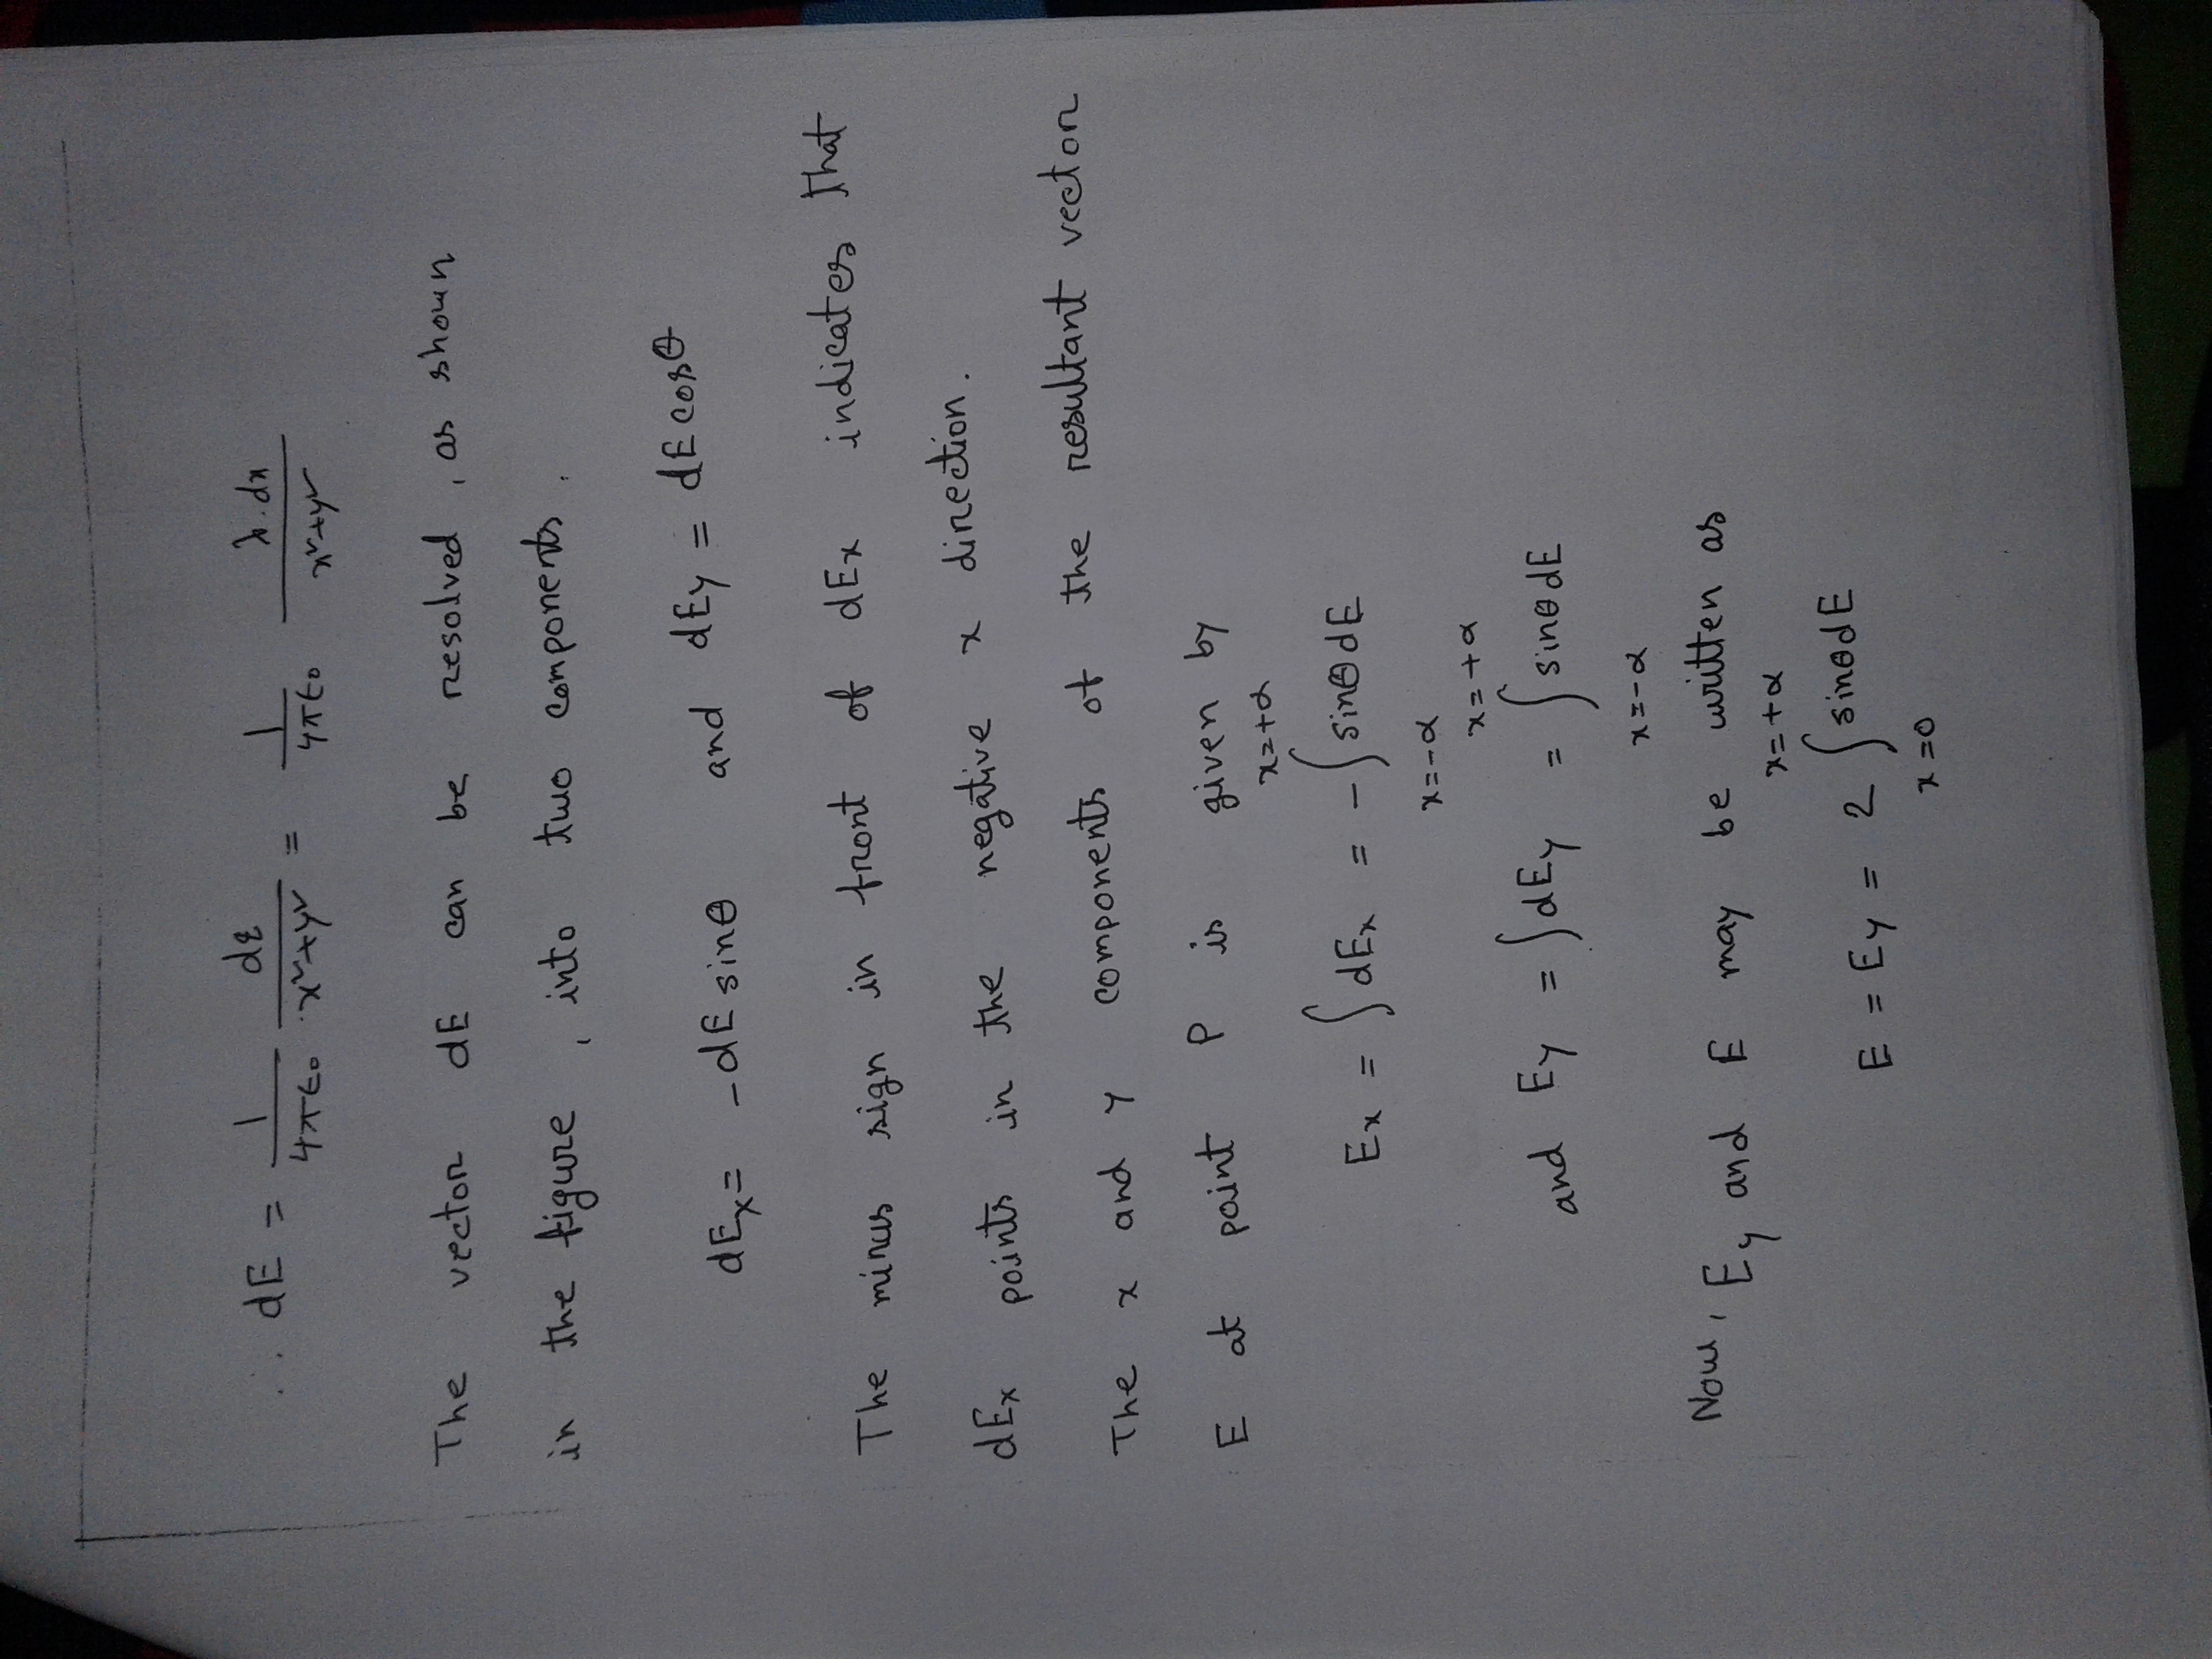 ∴ dE = 1/4πϵ₀ dq/x²+y² = 1/4πϵ₀ λ.dx/x²+y²
The vector dE can be resolved, as shown
in the figure, into two components.
dEx = -dE sinθ and dEy = dE cosθ
The minus sign in front of dEx indicates that
dEx points in the negative x direction.
The x and y components of the resultant vector
E at point P is given by
x=+α
Ex = ∫dEx = -∫sinθdE
x=-α
x=+α
and Ey = ∫dEy = ∫sinθdE
x=-α
Now, Ey and E may be written as
x=+α
E = Ey = 2 ∫sinθdE
x=0